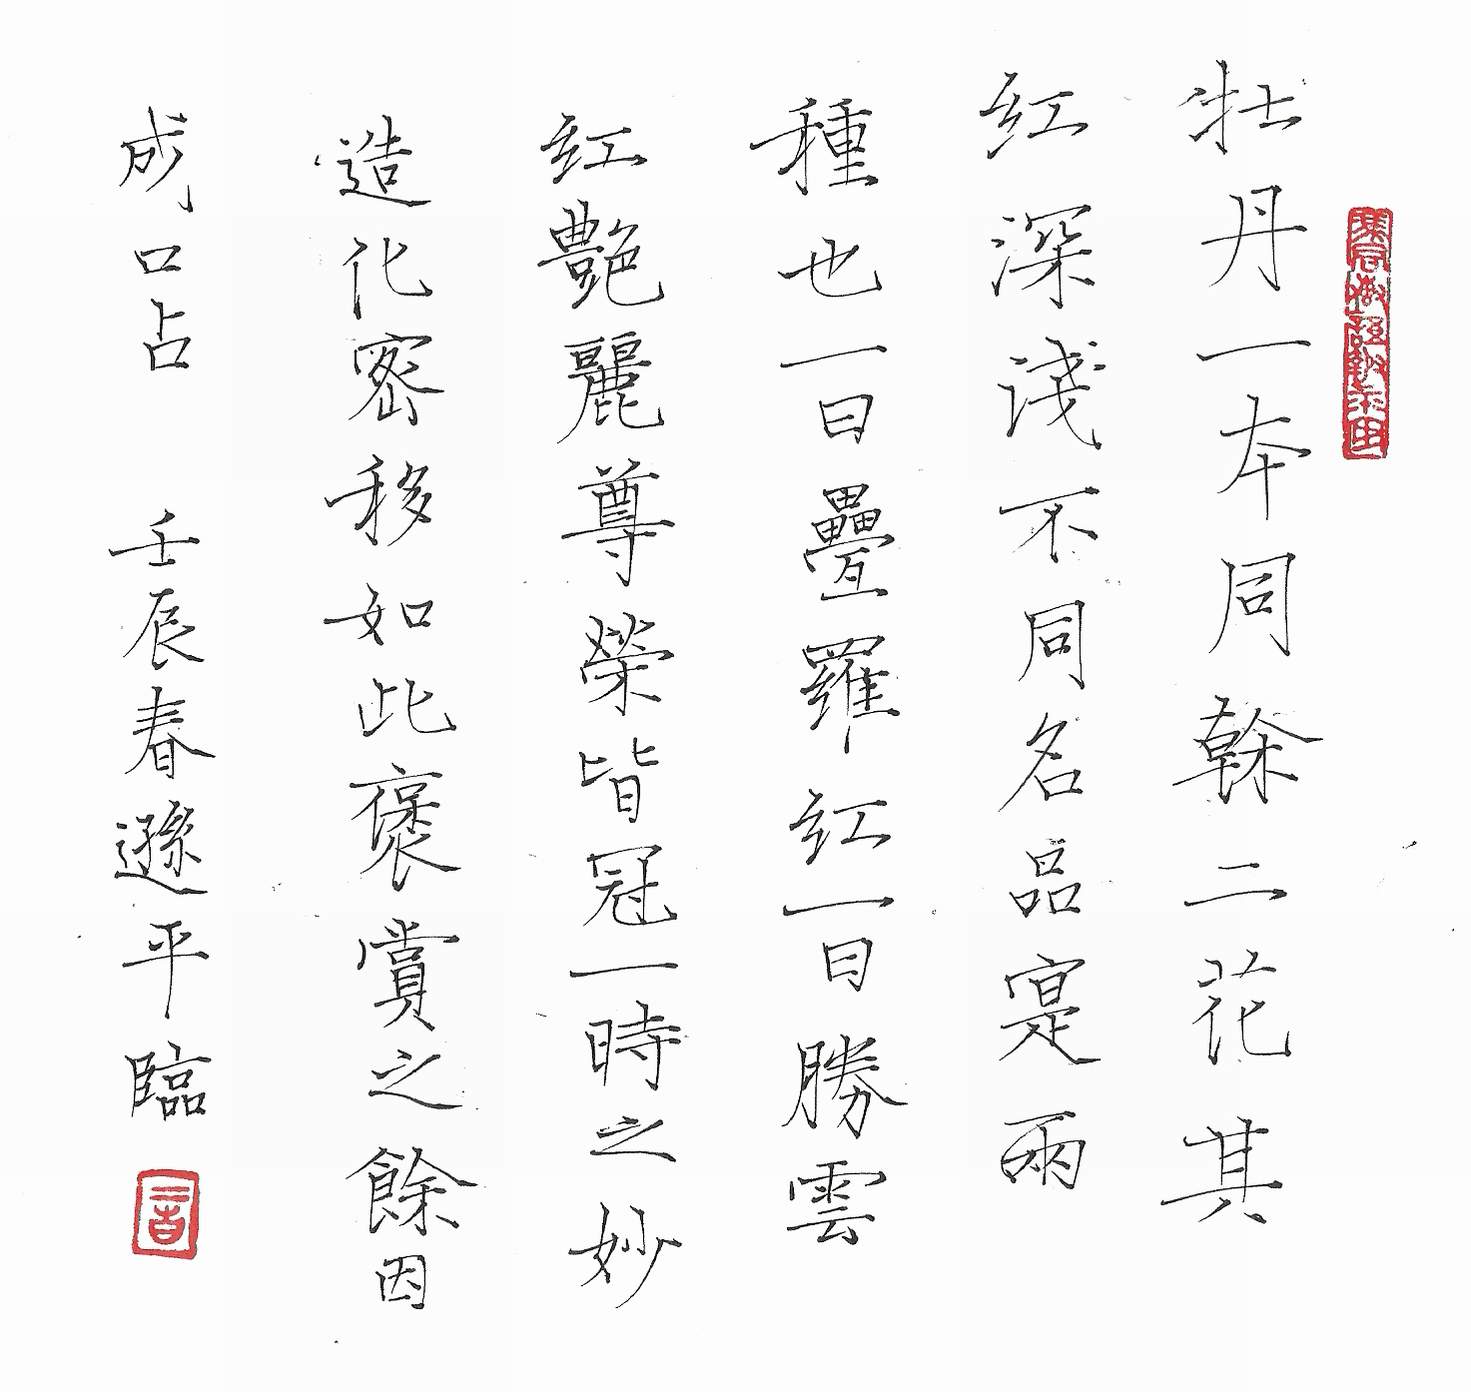 牡丹一本同榦二花其
紅深淺不同名品寔兩
種也一曰疊羅紅一曰勝雲
紅艷麗尊榮皆冠一時之妙
造化密移如此褒賞之餘因
成口占 壬辰春遜平臨